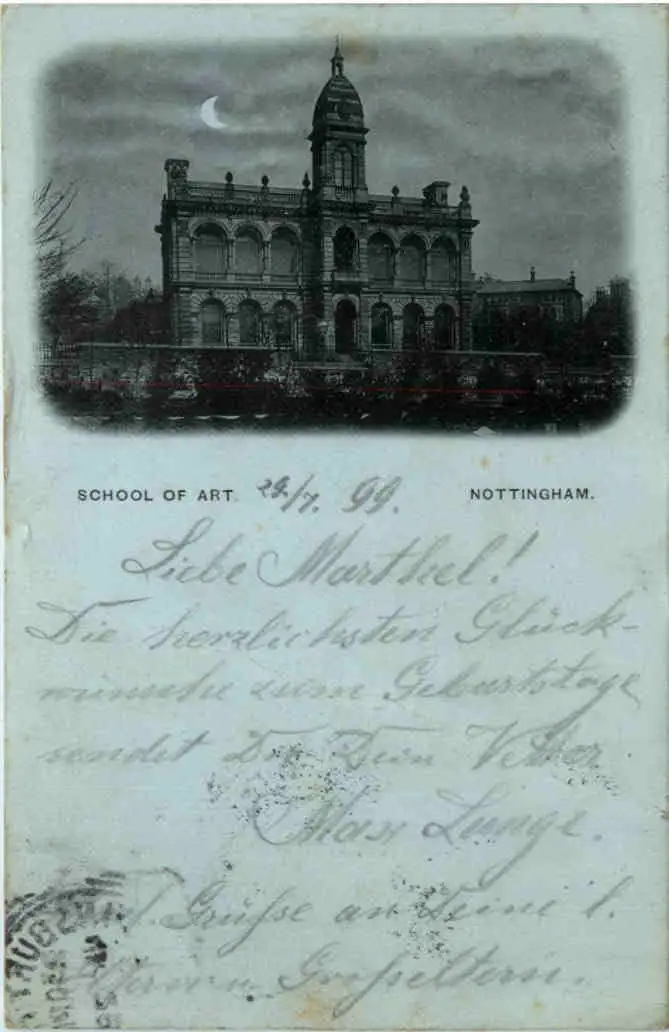 SCHOOL OF ART. 29./7. 99. NOTTINGHAM.
Liebe Marthel!
Die herzlichsten Glück-
wünsche zum Geburtstage
sendet Dir Dein Vetter
Max Lunge.
Grüsse an Deine l.
Eltern u. Grosseltern.